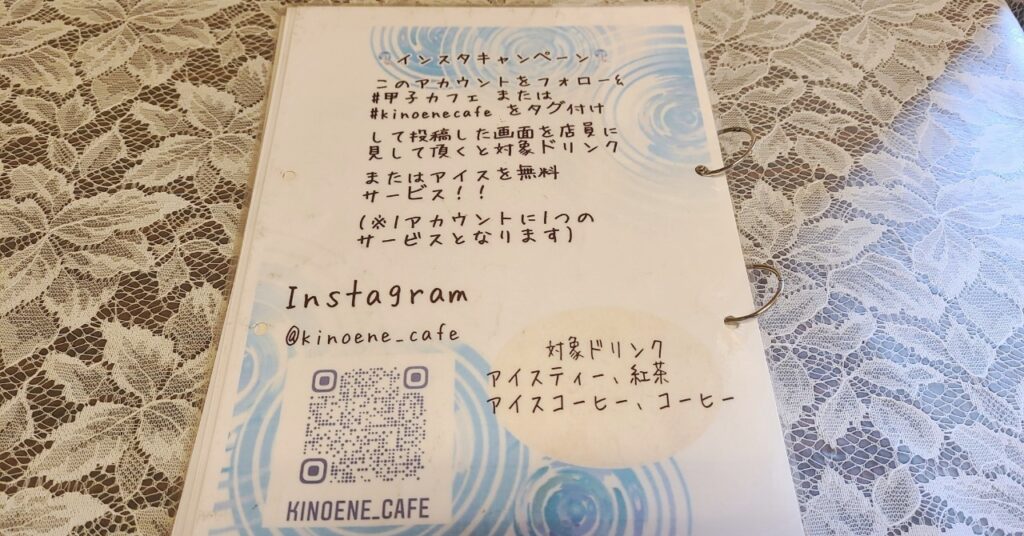 インスタキャンペーン
このアカウントをフォロー&
#甲子カフェ または
#kinoenecafe をタグ付け
して投稿した画面を店員に
見して頂くと対象ドリンク
またはアイスを無料
サービス!!
(※1アカウントに1つの
サービスとなります)
Instagram
@kinoene_cafe
対象ドリンク
アイスティー、紅茶
アイスコーヒー、コーヒー
KINOENE_CAFE